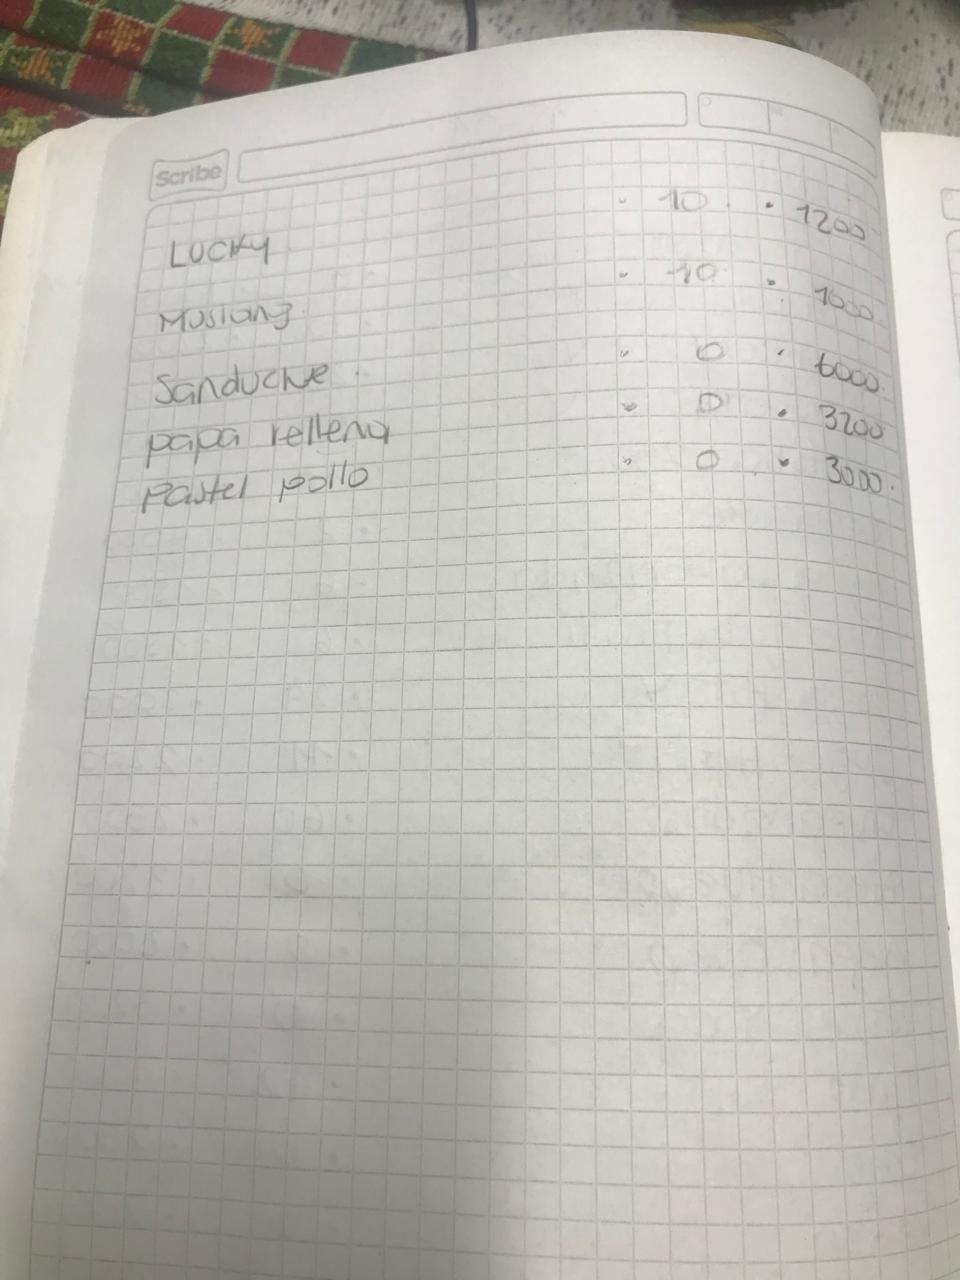 Scribe
LUCKY · 10 · 1200
Mustang · 10 · 1000
Sanduche · 0 · 6000
papa rellena · 0 · 3200
Pastel pollo · 0 · 3000